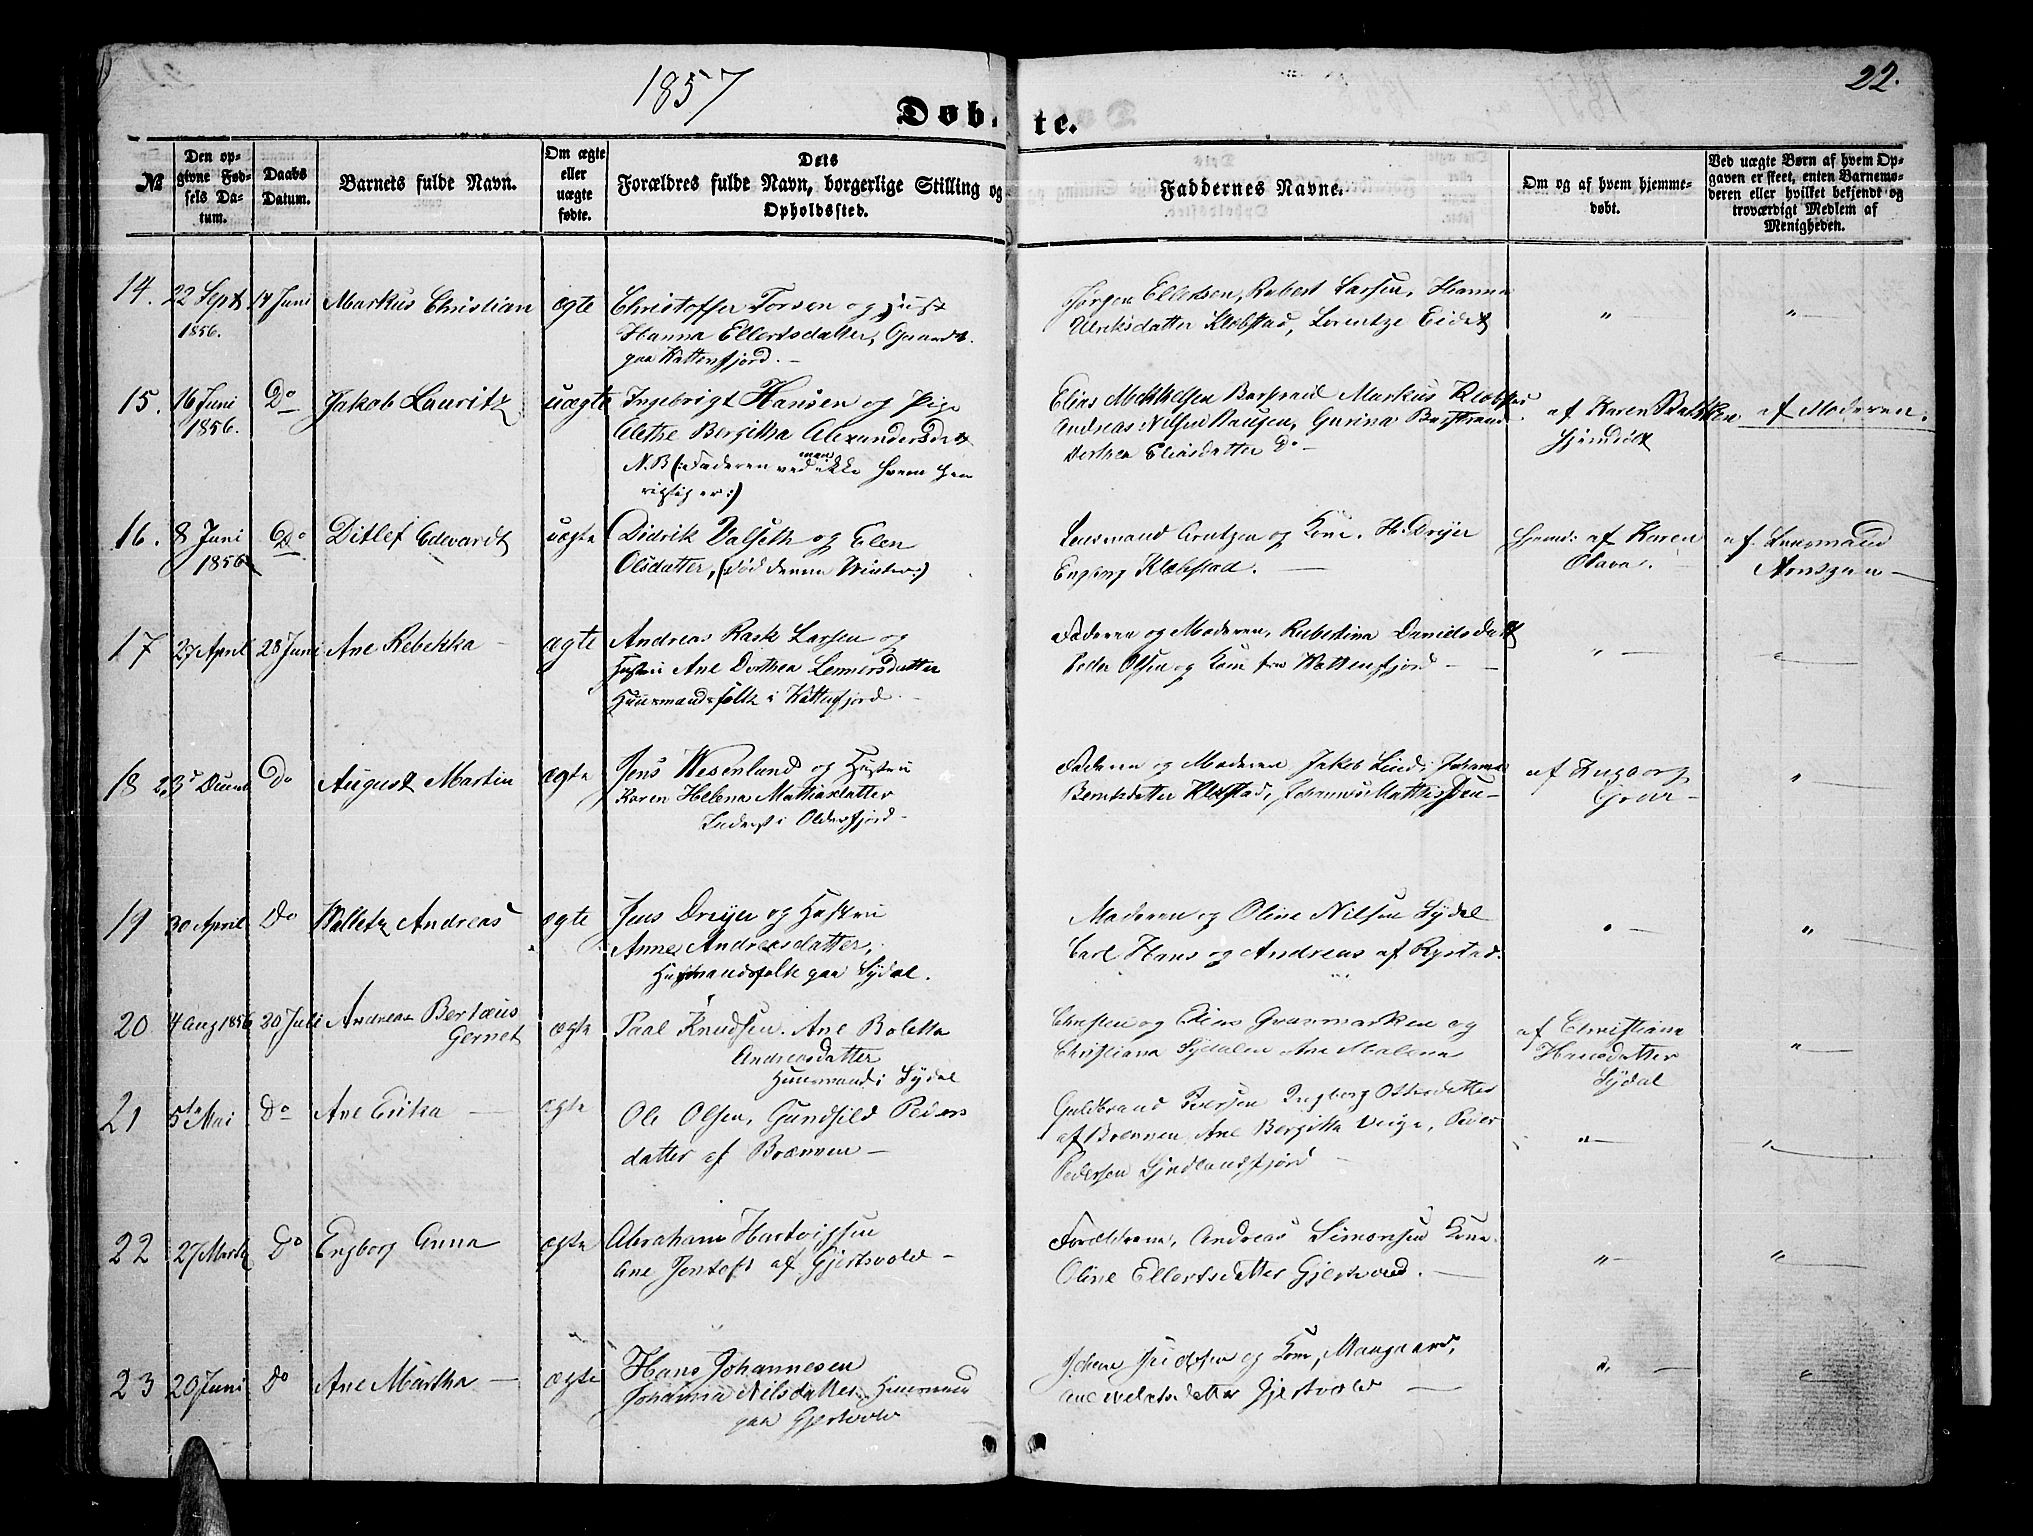 1857
22.
Døb te.
№
Den op-
givne Fød-
sels Da-
tum.
Daabs
Datum.
Barnets fulde Navn.
Om ægte
eller
uægte
fødte.
Dets
Forældres fulde Navn, borgerlige Stilling og
Opholdssted.
Faddernes Navne.
Om og af hvem hjemme-
døbt.
Ved uægte Børn af hvem Op-
gaven er skeet, enten Barnemo-
deren eller hvilket bekjendt og
troværdigt Medlem af
Menigheden.
14. 22 Sept 14 Juni Markus Christian ægte Christoffer Torsen og Hust
1856.
Hanna Ellertsdatter,
paa Kattenfjord.
Jørgen Ellertsen, Robert Larsen, Hanna
Ulriksdatter Klobstad, Lorentze Eidet
15. 16 Juni Do Jakob Lauritz uægte Ingebrigt Hansen og Pige
1856.
Alethe Bergitha Alexandersdat
N.B (: Faderen ved man ikke hvem den
rigtig er :)
Elias Mikkelsen Markus Klobstad
Andreas Nilsen Gurina
Dorthea Eliasdatter Do
af Karen
hjemdøbt
af Moderen.
16. 8 Juni Do Ditlef Edvardt uægte Didrik Valseth og Elen
1856
Olsdatter, (død denne Winter:)
Lensmand Arntzen og Kone, H. Dreÿer
Engborg Klobstad.
hjemd: af Karen
Olava.
af Lensmand
17 27 April 28 Juni Ane Rebekka ægte Andreas Rask Larsen og
Hustru Ane Dorthea Lennersdatter
Huusmandsfolk i Kattenfjord
Faderen og Moderen, Rubertina Davidsdatt
Peder Olsen og Kone fra Kattenfjord
18 23 Decemb Do August Martin ægte Jens Wesenlund og Hustru
Karen Helena Mathiasdatter
Inderst i Oldersfjord
Faderen og Moderen Jakob Lind, Johanna
Berntsdatter Klobstad, Johannes
af Ingborg
19 30 April Do Andreas ægte Jens Dreÿer og Hustru
Anne Andreasdatter,
Husmandsfolk paa Sÿdal.
Moderen og Oline Nilsen Sÿdal
Carl Hans og Andreas af Rystad.
20 4 Aug 1856 20 Juli Andreas Bertæus
Gernet
ægte Paal Knudsen. Ane Boletta
Andreasdatter
Huusmand i Sÿdal
Christen og Elias Grunmarken og
Christiana Sÿdalen Ane Malena
af Christiana
Hansdatter
Sÿdal
21 5te Mai Do Ane Erika ægte Ole Olsen, Gundhild Peders
datter af Brænnen
Guldbrand Iversen Ingborg Ottersdatter
af Brennen, Ane Bergitta Peder
Pedersen
22 27 Marts Do Engborg Anna ægte Abraham Hartvigsen
Ane Jentoft af Gjertsvold
Forældrene, Andreas Simonsen Kone
Oline Ellertsdatter Gjertsvold.
23 20 Juni Do Ane Martha ægte Hans Johannesen
Johanna Nilsdatter Huusmand
paa Gjertsvold
Johan og Kone,
Gjertsvold